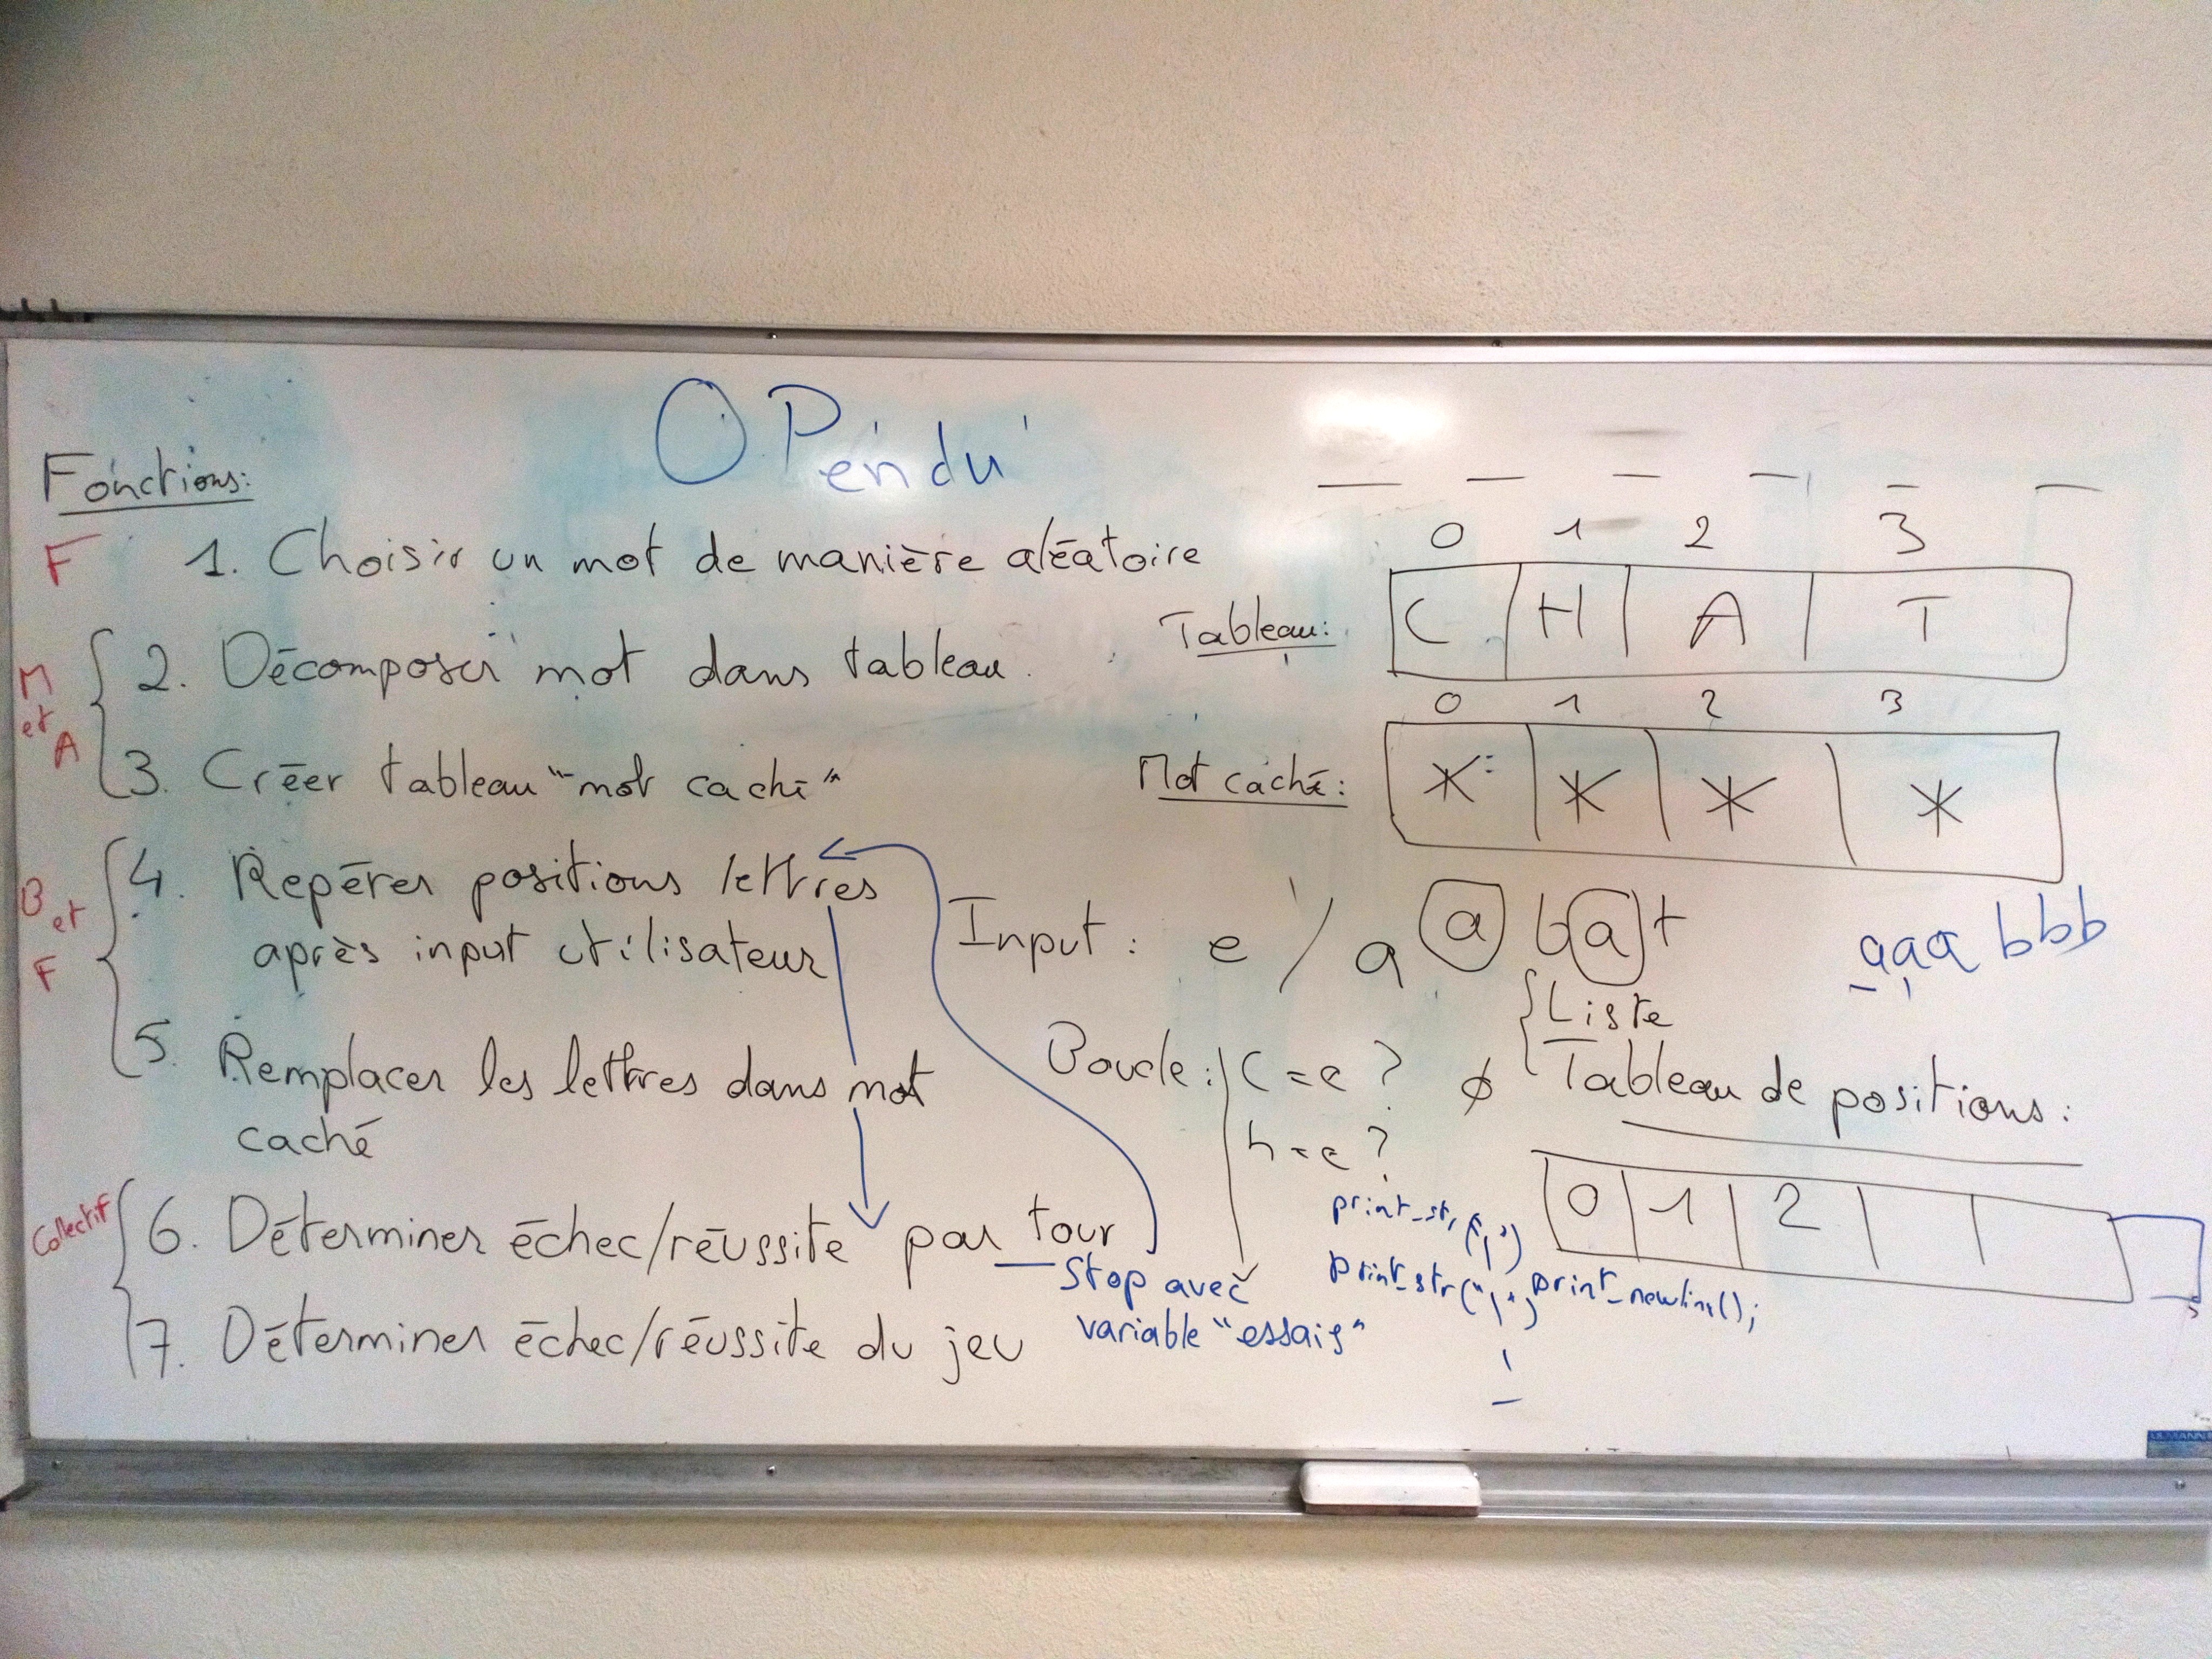 O Pendu
Fonctions:
F 1. Choisir un mot de manière aléatoire
M et A
2. Décomposer mot dans tableau
3. Créer tableau "mot caché"
B et F
4. Repérer positions lettres
après input utilisateur
5. Remplacer les lettres dans mot
caché
Collectif
6. Déterminer échec/réussite par tour
Stop avec
variable "essais"
7. Déterminer échec/réussite du jeu
0 1 2 3
Tableau: C H A T
0 1 2 3
Mot caché: * * * *
Input : e / a a bat
aaa bbb
Boucle: C = e ? ϕ
h = e ?
Liste
Tableau de positions:
0 1 2
print_str("|")
print_str("|") print_newline();